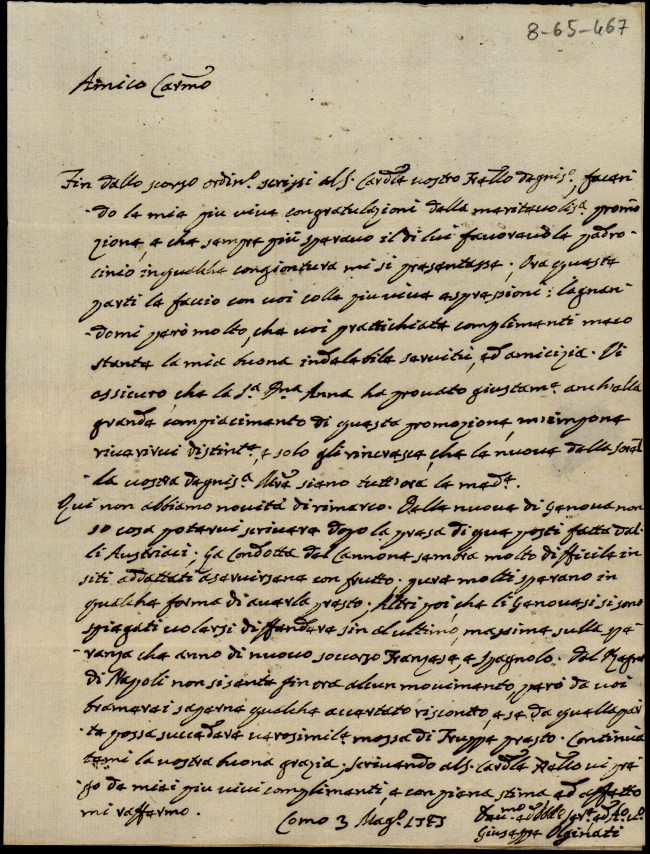 8-65-467
Amico Carmo
Fin dallo scorso ordin.º scrissi al S. Cardle vostro Frello degnis.º, facen
do le mie piu vive congratulazioni della meritevoliss.ª promo
zione, e che sempre più speravo il di lui favorevole padro-
cinio in qualche congiontura mi si presentasse; Ora queste
parti le faccio con voi colle piu vive espressioni: lagnan
domi però molto, che voi prattichiate complimenti meco
stante la mia buona indelebile servitù, ed amicizia. Vi
assicuro, che la S.ª Dna Anna ha provato giustam.e anch'ella
grande compiacimento di questa promozione, m'impone
riverirvi distint.e, e solo gli rincresce, che le nuove della sorel
la vostra degnis.ª siano tutt'ora le med.e.
Qui non abbiamo novità di rimarco. Delle nuove di Genova non
so cosa potervi scrivere dopo la presa di que posti fatta dal-
li Austriaci; La Condotta del Cannone sembra molto difficile in
siti addattati a servirsene con frutto; pure molti sperano in
qualche forma di averla presto. Altri poi, che li Genovesi si sono
spiegati volersi diffendere sin al ultimo, massime sulla spe
ranza che anno di nuovo soccorso Franzese, e Spagnolo. Del Regno
di Napoli non si sente fin ora alcun movimento, però da voi
bramerei saperne qualche accertato riscontro, e se da quella par
te possa succedere verosimile mossa di Truppe presto. Continua
temi la vostra buona grazia. scrivendo al S. Cardle Frello vi pre
go de miei piu vivi complimenti, e con piena stima ed affetto
mi raffermo.
Como 3 Mag.º
Giuseppe Olginati